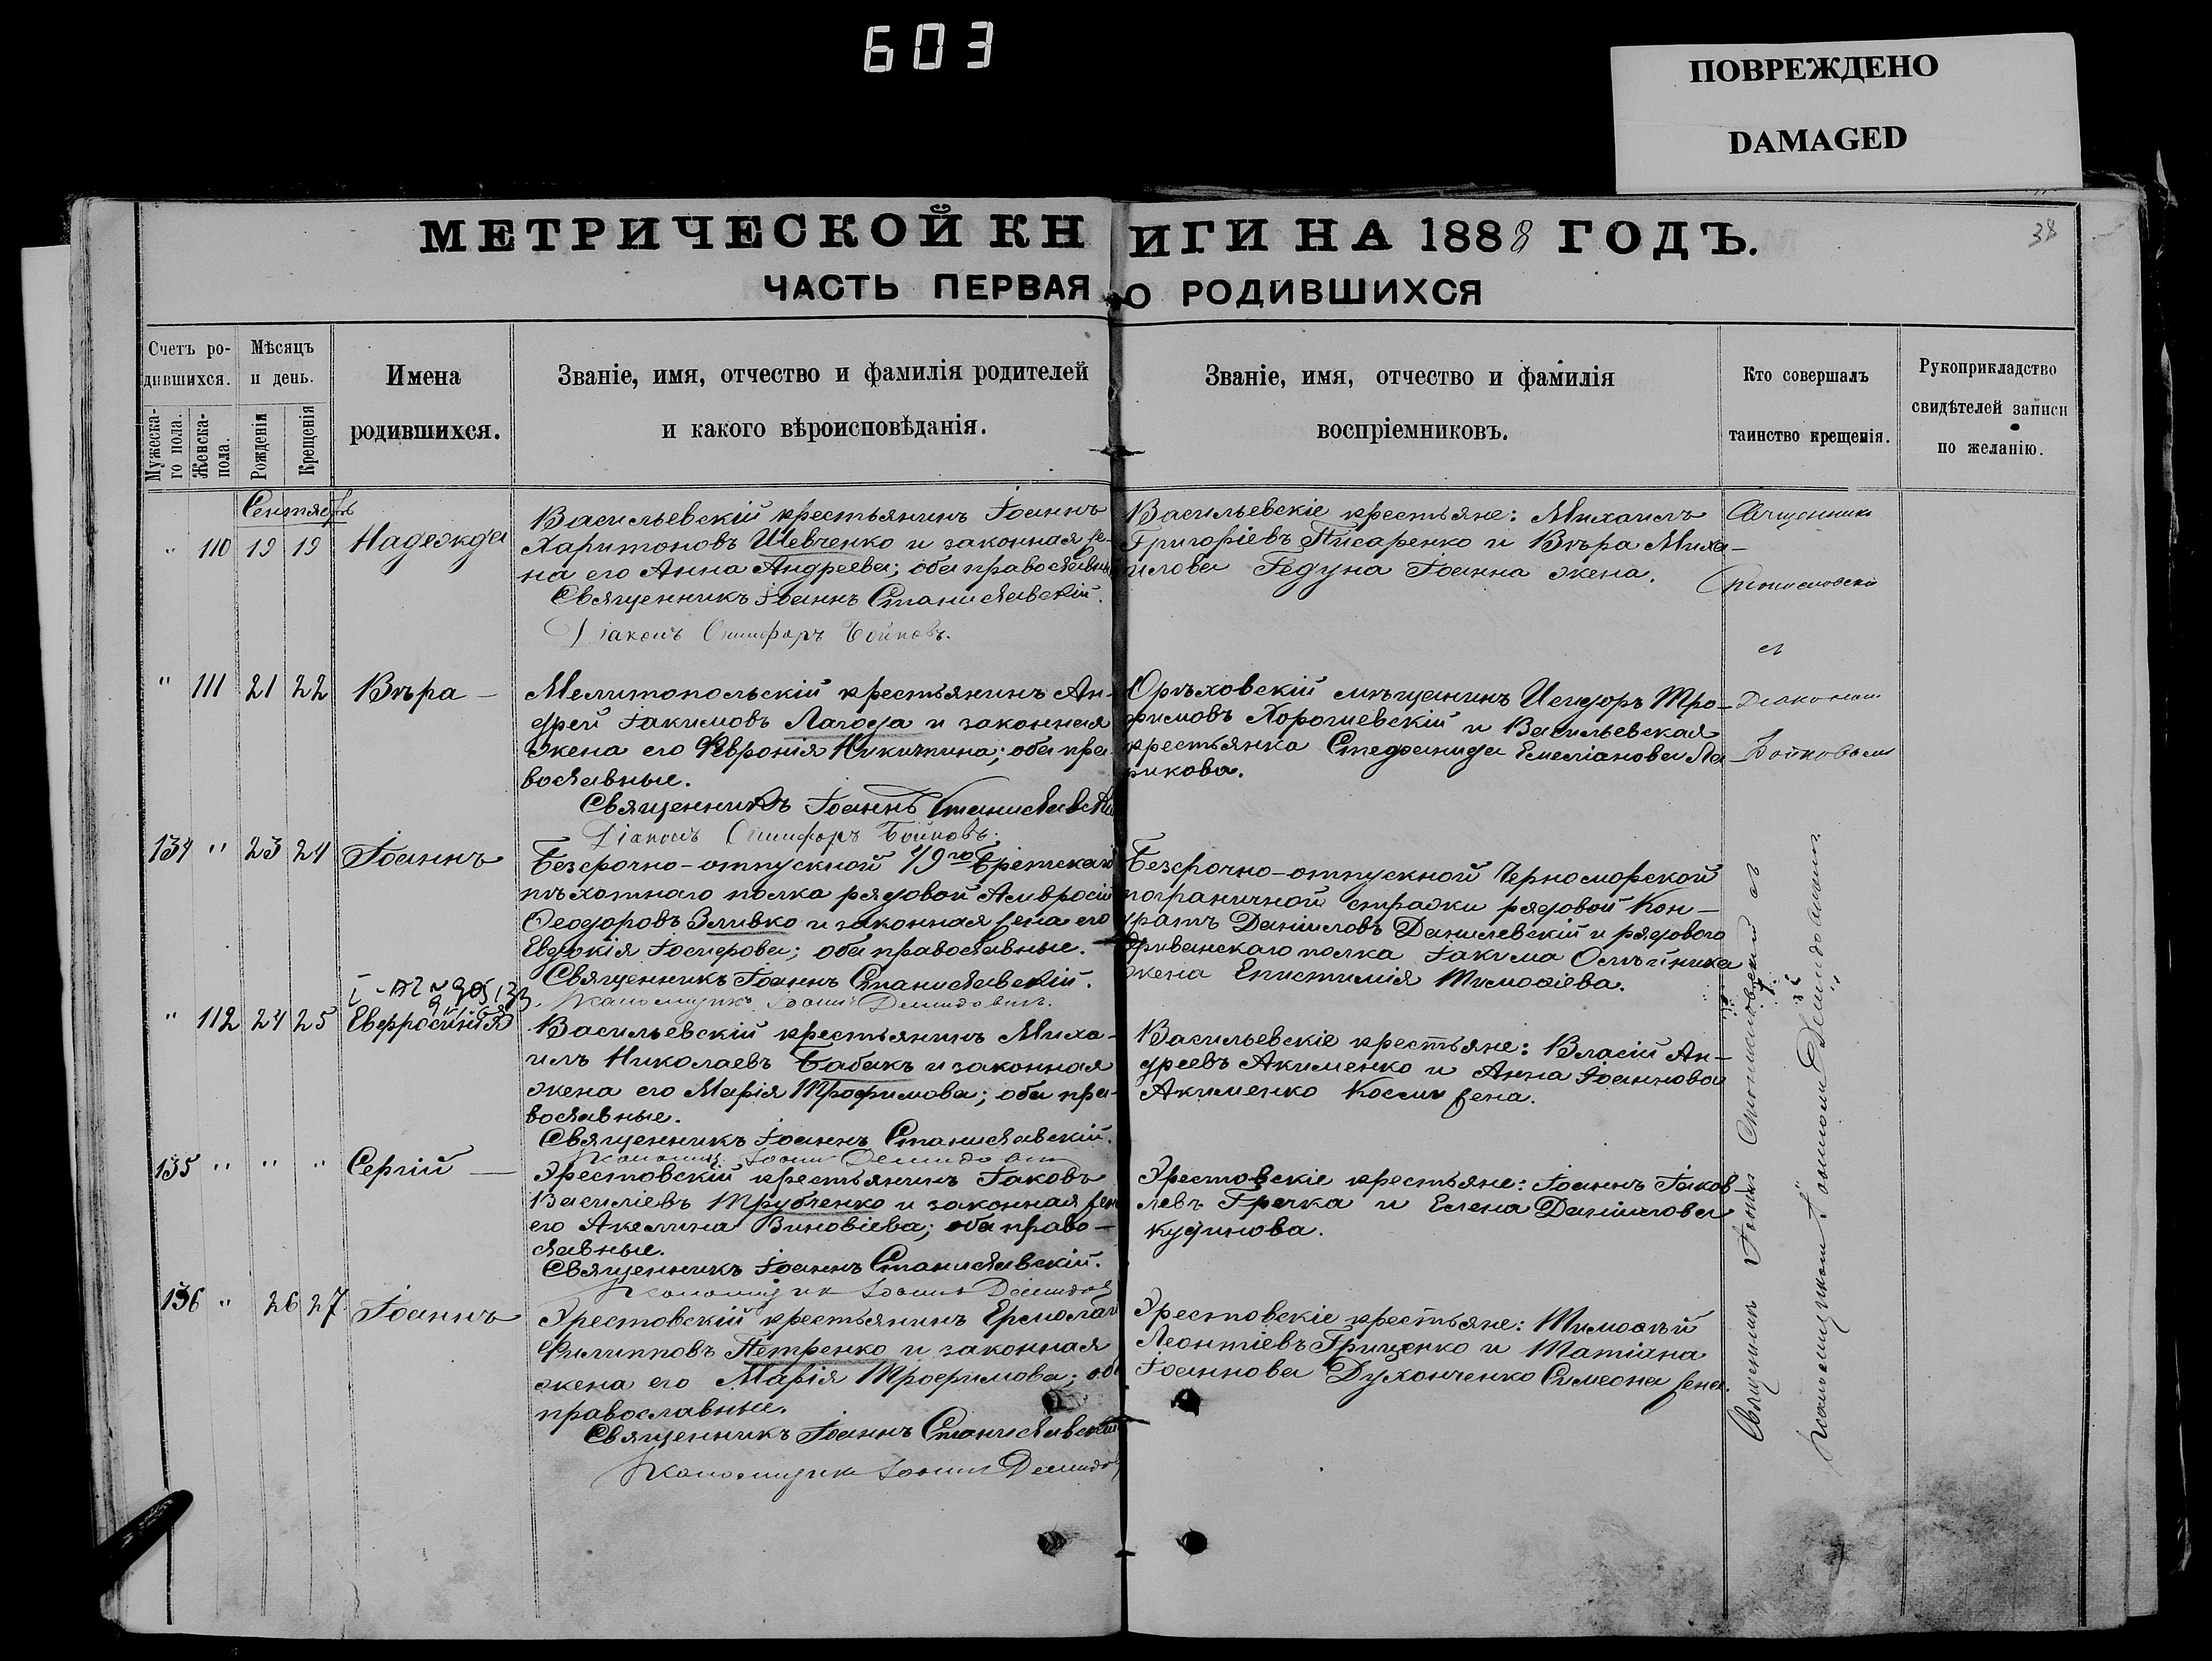 603
ПОВРЕЖДЕНО
DAMAGED
МЕТРИЧЕСКОЙ КНИГИ НА 1888 ГОДЪ.
38
ЧАСТЬ ПЕРВАЯ О РОДИВШИХСЯ
Счетъ родившихся.
Мужескаго пола.
Женска- пола.
Мѣсяцъ и день.
Рожденія
Крещенія
Имена родившихся.
Званіе, имя, отчество и фамилія родителей
и какого вѣроисповѣданія.
Званіе, имя, отчество и фамилія
воспріемниковъ.
Кто совершалъ
таинство крещенія.
Рукоприкладство
свидѣтелей записи
по желанію.
Сентябрь
" 110 19 19 Надежда
Васильевскій крестьянинъ Іоаннъ
Харитоновъ Шевченко и законная же-
на его Анна Андреева; оба православные
Священникъ Іоаннъ Станиславскій.
Діаконъ Онисифоръ Бойковъ.
Васильевскіе крестьяне: Михаилъ
Григоріевъ Писаренко и Вѣра Миха-
илова Гедуна Іоанна жена.
Священникъ
Станиславскій
съ
Діакономъ
Бойковымъ
" 111 21 22 Вѣра —
Мелитопольскій крестьянинъ Ан-
дрей Іакимовъ Лагода и законная
жена его Февронія Никитина; оба пра-
вославные.
Священникъ Іоаннъ Станиславскій
Діаконъ Онисифоръ Бойковъ.
Орѣховскій мѣщанинъ Исидоръ Тро-
фимовъ Хорошевскій и Васильевская
крестьянка Стефанида Емеліанова Ла-
рикова.
134 " 23 24 Іоаннъ
Безсрочно-отпускной 49го Брестскаго
пѣхотнаго полка рядовой Амвросій
Ѳеодоровъ Зливко и законная жена его
Евдокія Іосифова; оба православные.
Священникъ Іоаннъ Станиславскій.
Псаломщикъ Іоаннъ Демидовичъ.
Безсрочно-отпускной Черноморской
пограничной стражи рядовой Кон-
дратъ Даніиловъ Данилевскій и рядового
Эриванскаго полка Іакима Олѣйника
жена Епистимія Тимоѳіева.
" 112 24 25 Евфросинія
Васильевскій крестьянинъ Миха-
илъ Николаевъ Бабакъ и законная
жена его Марія Трофимова; оба пра-
вославные.
Священникъ Іоаннъ Станиславскій.
Псаломщ. Іоаннъ Демидович
Васильевскіе крестьяне: Власій Ан-
дреевъ Акименко и Анна Іоаннова
Акименко Космы жена.
135 " " " Сергій —
Эрестовскій крестьянинъ Іаковъ
Василіевъ Трубченко и законная жена
его Акелина Зиновіева; оба право-
славные.
Священникъ Іоаннъ Станиславскій.
Псаломщикъ Іоаннъ Демидов
Эрестовскіе крестьяне: Іоаннъ Іаков-
левъ Гречка и Елена Даніилова
Кудинова.
136 " 26 27 Іоаннъ
Эрестовскій крестьянинъ Ермолай
Филипповъ Петренко и законная
жена его Марія Трофимова; оба
православные.
Священникъ Іоаннъ Станиславскій
Псаломщикъ Іоаннъ Демидов
Эрестовскіе крестьяне: Тимоѳей
Леонтіевъ Гриценко и Татіана
Іоаннова Духонченко Симеона жена.
Священникъ Іоаннъ Станиславскій съ
псаломщикомъ Іоанномъ Демидовичемъ